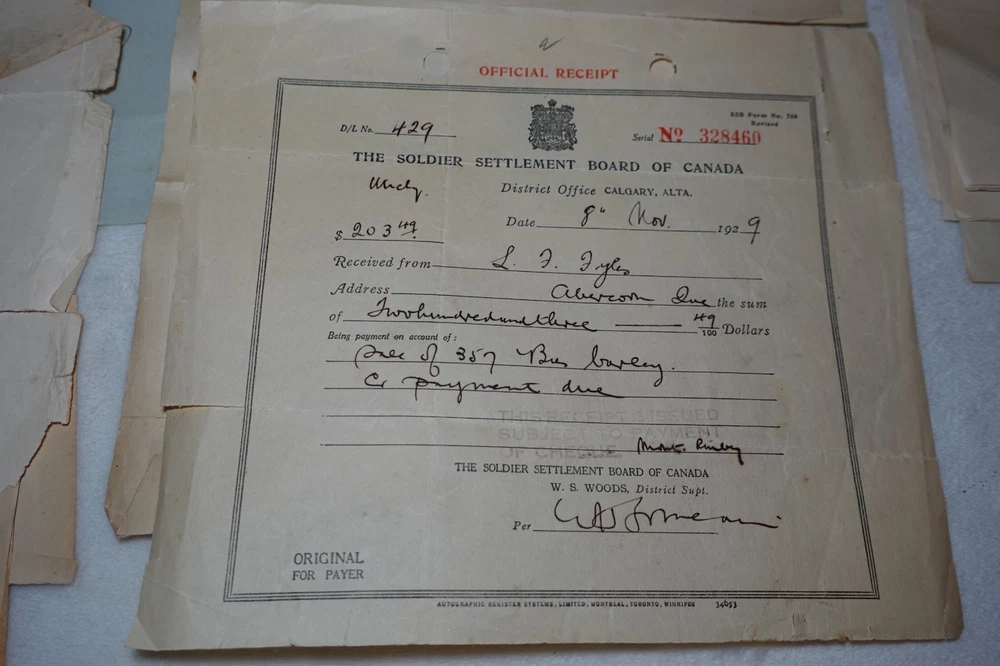 OFFICIAL RECEIPT
SSB Form No. 798
Revised
D/L No. 429
Serial No 328460
THE SOLDIER SETTLEMENT BOARD OF CANADA
District Office CALGARY, ALTA.
Date 8th Nov. 1929
$ 203 49
Received from L. F. Fyles
Address Abercorn Que the sum
of Two hundred and three 49/100 Dollars
Being payment on account of:
Sale of 357 Bus barley.
Cr payment due
THIS RECEIPT IS ISSUED
SUBJECT TO PAYMENT
OF CHEQUE.
THE SOLDIER SETTLEMENT BOARD OF CANADA
W. S. WOODS, District Supt.
Per
ORIGINAL
FOR PAYER
AUTOGRAPHIC REGISTER SYSTEMS, LIMITED, MONTREAL, TORONTO, WINNIPEG 34653